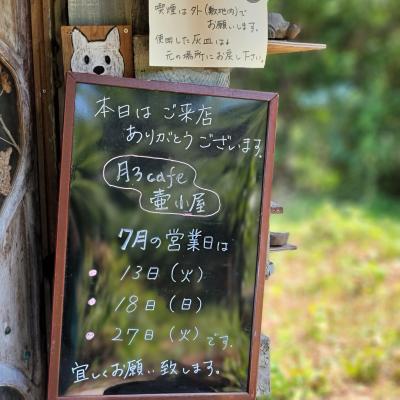 喫煙は外(敷地内)で
お願いします。
使用した灰皿は、
元の場所にお戻し下さい。
本日は ご来店
ありがとうございます。
月3cafe
壷小屋
7月の営業日は
・13日(火)
・18日(日)
・27日(火)です。
宜しくお願い致します。